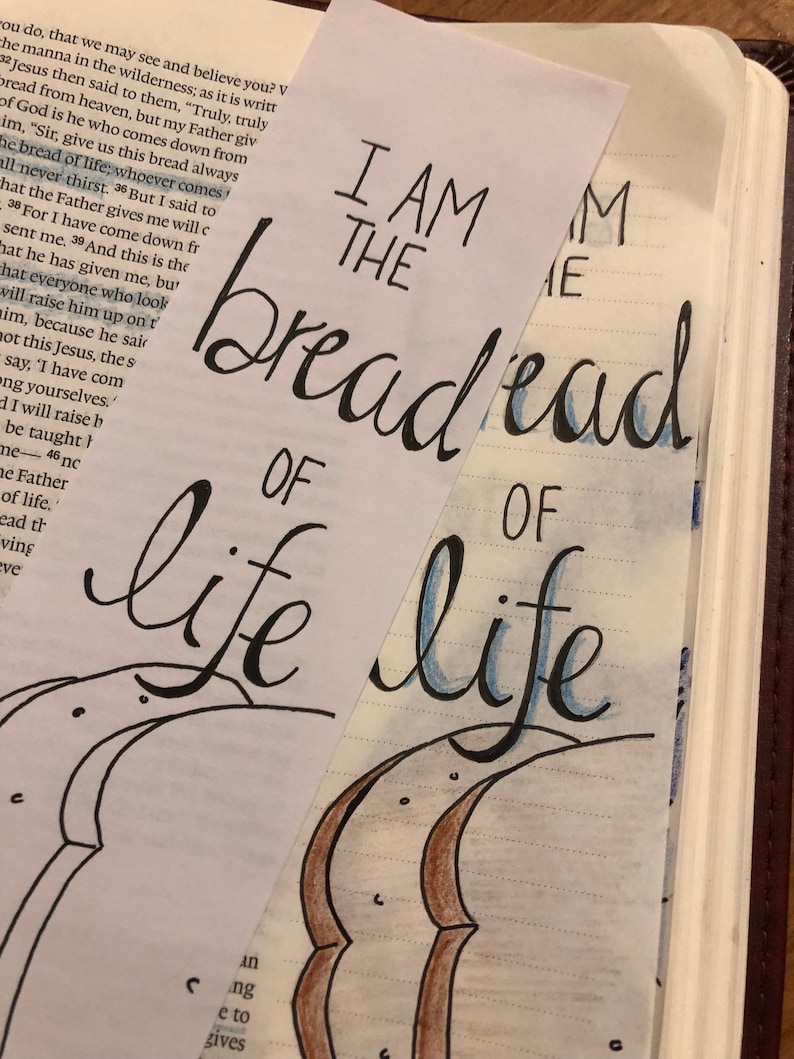 you do, that we may see and believe you?
the manna in the wilderness; as it is writt
32 Jesus then said to them, “Truly, truly
bread from heaven, but my Father giv
of God is he who comes down from
him, “Sir, give us this bread always
he bread of life; whoever comes
all never thirst. 36 But I said to
that the Father gives me will c
38 For I have come down fr
sent me. 39 And this is the
hat he has given me, bu
that everyone who look
will raise him up on t
him, because he said
not this Jesus, the s
say, ‘I have com
ong yourselves.
d I will raise h
be taught
me— 46 no
he Father
of life.
ead th
iving
eve
I AM
THE
bread
OF
life
AM
HE
read
OF
life
an
ng
e to
gives